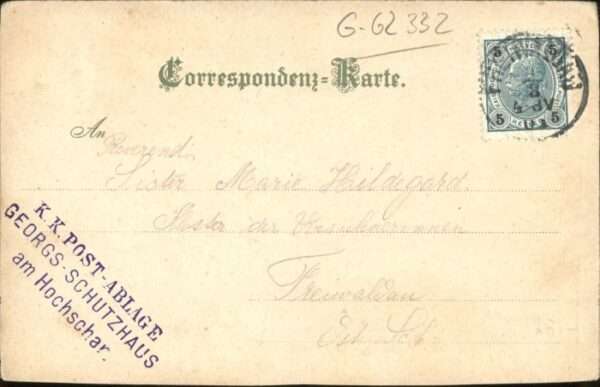 G-62 332
Correspondenz-Karte.
5 5
5 5
An
Reverend.
Sister Marie Hildegard.
Kloster der Ursulinerinnen
Freiwaldau
Öst. Sch.
K.K. POST-ABLAGE
GEORGS-SCHUTZHAUS
am Hochschar.